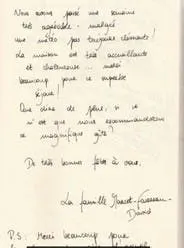 Nous avons passé une semaine
très agréable malgré
une météo pas toujours clémente!
La maison est très accueillante
et chaleureuse ... merci
beaucoup pour ce superbe
séjour!
Que dire de plus, si ce
n'est que nous recommanderons
ce magnifique gîte?
De très bonnes fêtes à vous.
La famille
P.S: Merci beaucoup pour